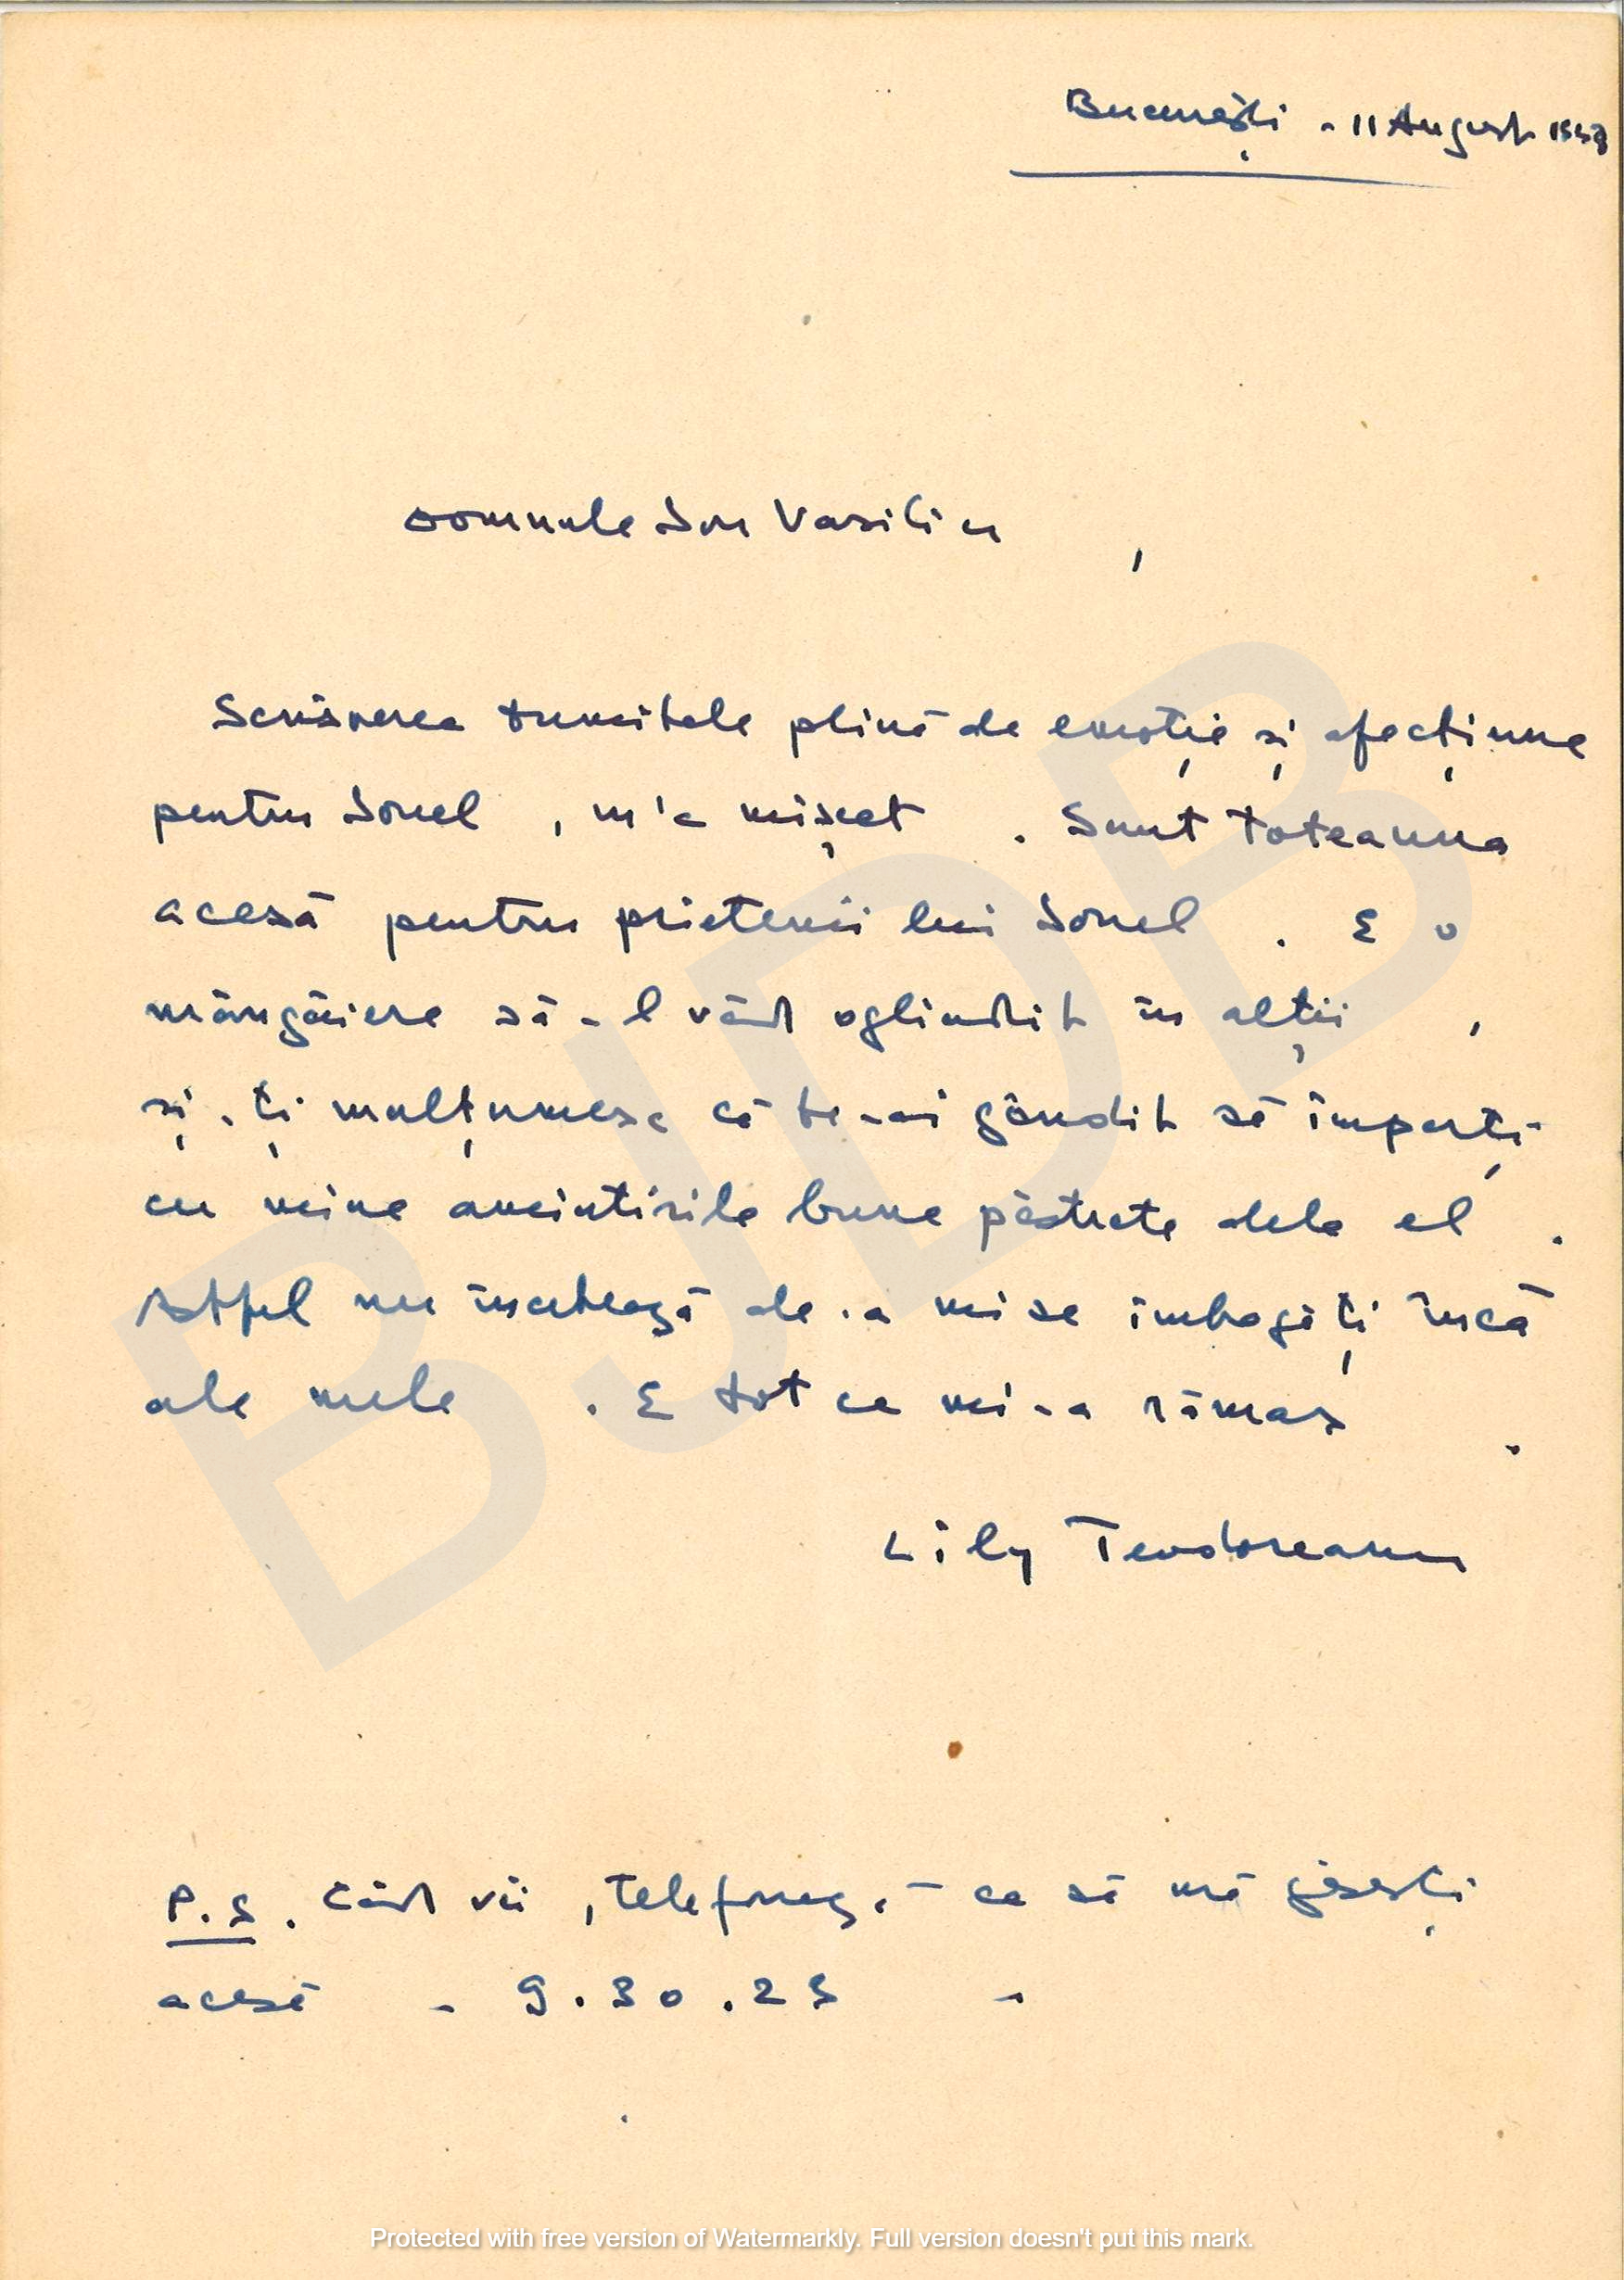 București - 11 August
Domnule Ion Vasiliu ,
Scrisoarea dumitale plină de emoție și afecțiune
pentru Ionel , m'a mișcat . Sunt totdeauna
acasă pentru prietenii lui Ionel . E o
mângâiere să-l văd oglindit în alții ,
și-ți mulțumesc că te-ai gândit să împarți
cu mine amintirile bune păstrate dela el .
Astfel nu încetează de-a mi se îmbogăți încă
ale mele . E tot ce mi-a rămas .
Lily Teodoreanu
P.S. Când vii , telefonează ca să mă găsești
acasă - 9.30.23 -
BJDB
Protected with free version of Watermarkly. Full version doesn't put this mark.